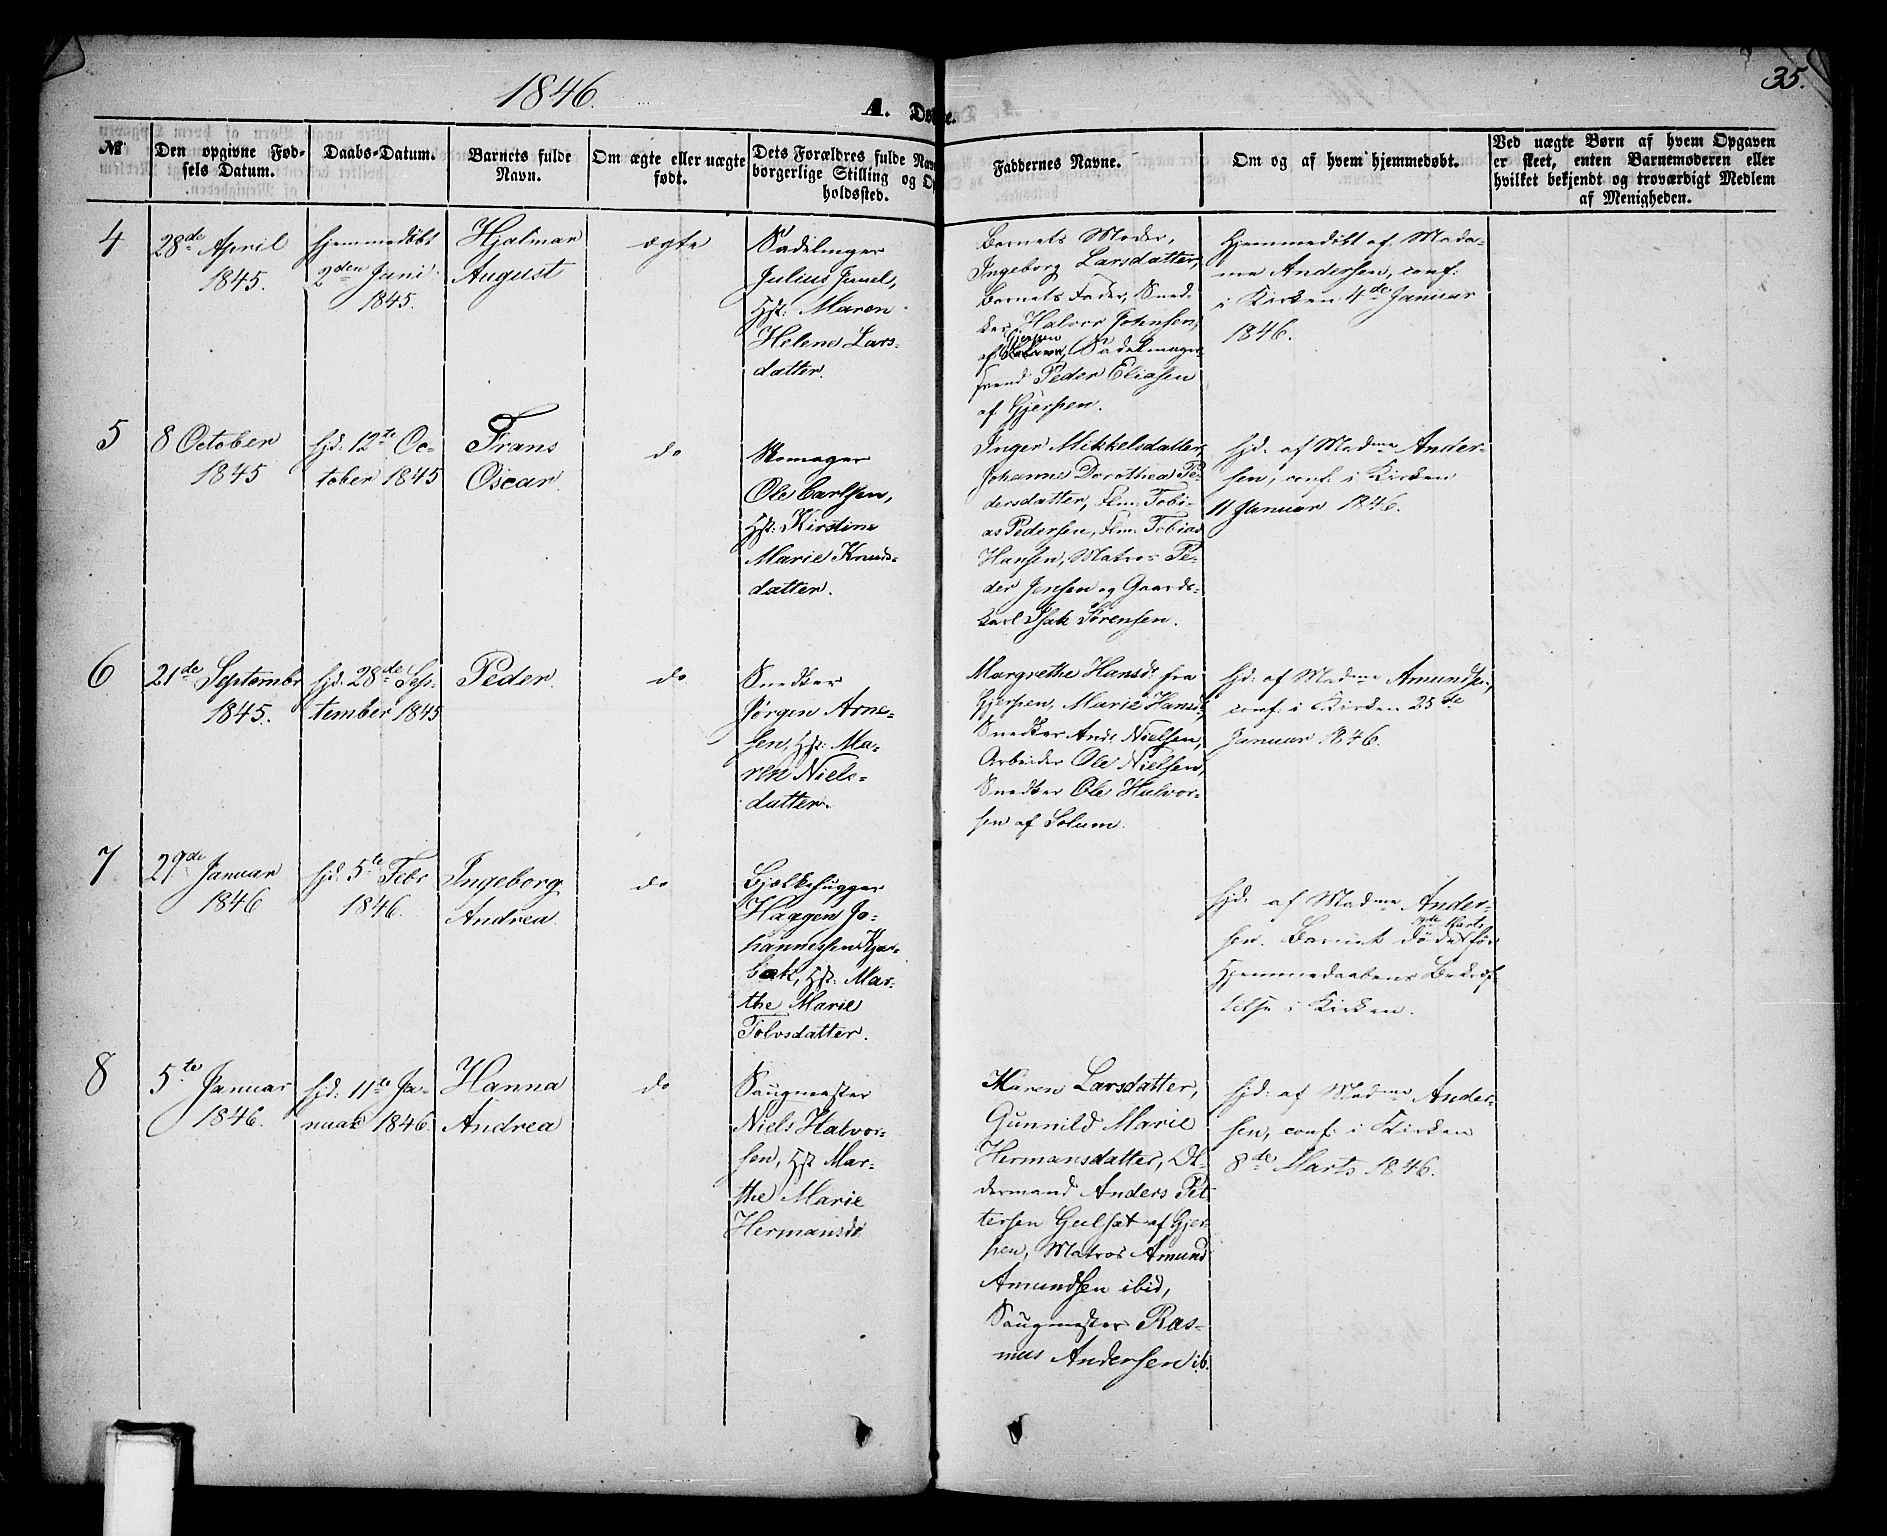 1846.
A. Døbte.
35.
№
Den opgivne Fød-
sels Datum.
Daabs-Datum.
Barnets fulde
Navn.
Om ægte eller uægte
født.
Dets Forældres fulde Nav
borgerlige Stilling og O
holdssted.
Faddernes Navne.
Om og af hvem hjemmedøbt.
Ved uægte Børn af hvem Opgaven
er skeet, enten Barnemoderen eller
hvilket bekjendt og troværdigt Medlem
af Menigheden.
4
28de April
1845.
hjemmedøbt
2den Juni
1845.
Hjalmar
August
ægte
Sadelmager
Julius Juuel,
Hst: Maren
Helene Lars-
datter.
Barnets Moder,
Ingeborg Larsdatter,
Barnets Fader, Sned-
ker Halvor Johnsen,
af Gjerpen, Sadelmager-
svend Peder Eliasen
af Gjerpen.
Hjemmedøbt af Mada-
me Andersen, conf:
i Kirken 4de Januar
1846.
5
8 October
1845
hjd: 12te Oc-
tober 1845
Frans
Oscar
do
Skomager
Ole Carlsen,
Hst: Kirstine
Marie Knuds-
datter.
Inger Mikkelsdatter,
Johanne Dorothea Pe-
dersdatter, Tøm: Tobi-
as Pedersen, Tøm: Tobias
Hansen, Matros Pe-
der Jensen og Gaards-
karl Isak Sørensen.
hjd: af Madme Ander-
sen, conf: i Kirken
11 Januar 1846.
6
21de Septembr
1845.
hjd: 28de Sep-
tember 1845
Peder.
do
Snedker
Jørgen Arne-
sen, Hst: Ma-
ren Niels-
datter.
Margrethe Hansdr fra
Gjerpen, Marie Hansdr,
Snedker And: Nielsen,
Arbeider Ole Nielsen,
Snedker Ole Halvor-
sen af Solum.
hjd: af Madme Amundsen,
conf: i Kirken 25de
Januar 1846.
7
29de Januar
1846
hjd: 5te Febr
1846.
Ingeborg
Andrea
do
Bjelkehugger
Haagen Jo-
hannessen Kjær-
bæk, Hst: Mar-
the Marie
Tolvsdatter.
hjd: af Madme Ander-
sen. Barnet døde Marts før
Hjemmedaabens Bekræf
telse i Kirken.
8
5te Januar
1846.
hjd: 11te Ja-
nuar 1846.
Hanna
Andrea
do
Saugmester
Niels Halvor-
sen, Hst Mar-
the Marie
Hermansdr
Maren Larsdatter,
Gunnild Marie
Hermansdatter, Ol-
dermand Anders Pet-
tersen Gulset af Gjer-
pen, Matros Amund
Amundsen ibid,
Saugmester Ras-
mus Andersen ib.
hjd: af Madme Ander-
sen, conf: i Kirken
8de Marts 1846.